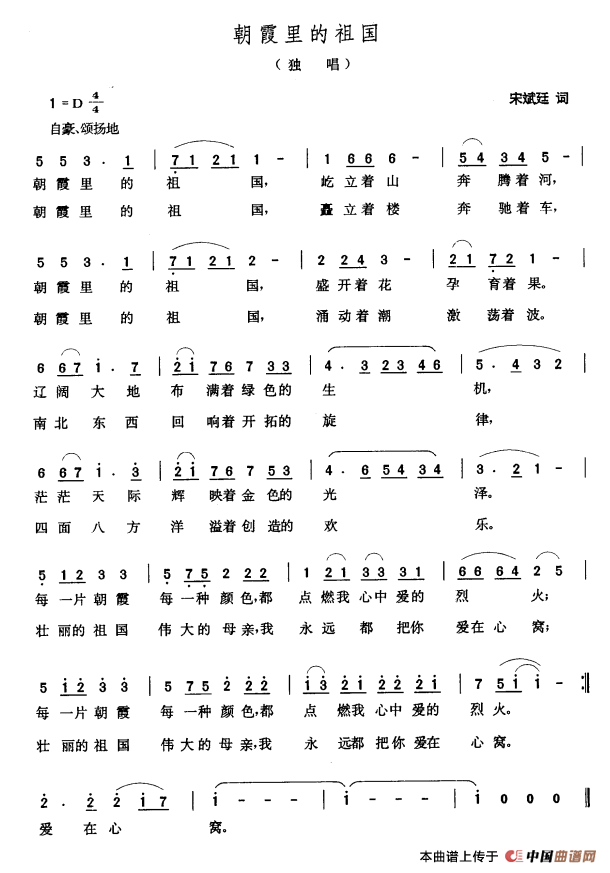 朝霞里的祖国
（独 唱）
1=D 4/4
宋斌廷 词
自豪、颂扬地
5 5 3 · 1 | 7 1 2 1 1 - | 1 6 6 6 - | 5 4 3 4 5 - |
朝霞里 的 祖 国, 屹立着山 奔 腾着河,
朝霞里 的 祖 国, 矗立着楼 奔 驰着车,
5 5 3 · 1 | 7 1 2 1 2 - | 2 2 4 3 - | 2 1 7 2 1 - |
朝霞里 的 祖 国, 盛开着花 孕 育着果。
朝霞里 的 祖 国, 涌动着潮 激 荡着波。
6 6 7 1 · 7 | 2 1 7 6 7 3 3 | 4 · 3 2 3 4 6 | 5 · 4 3 2 |
辽阔大地 布 满着绿色的 生 机,
南北东西 回 响着开拓的 旋 律,
6 6 7 1 · 3 | 2 1 7 6 7 5 3 | 4 · 6 5 4 3 4 | 3 · 2 1 - |
茫茫天际 辉 映着金色的 光 泽。
四面八方 洋 溢着创造的 欢 乐。
5 1 2 3 3 | 5 7 5 2 2 2 | 1 2 1 3 3 3 1 | 6 6 6 4 2 5 |
每一片朝霞 每一种颜色,都 点燃我心中爱的 烈 火;
壮丽的祖国 伟大的母亲,我 永远都把你 爱在心窝;
5 1 2 3 3 | 5 7 5 2 2 2 | 1 3 2 1 2 2 2 1 | 7 5 1 1 - :‖
每一片朝霞 每一种颜色,都 点 燃我心中爱的 烈火。
壮丽的祖国 伟大的母亲,我 永 远都把你爱在 心窝。
2 · 2 2 1 7 | 1 - - - | 1 - - - | 1 0 0 0 ‖
爱 在心 窝。
本曲谱上传于 中国曲谱网